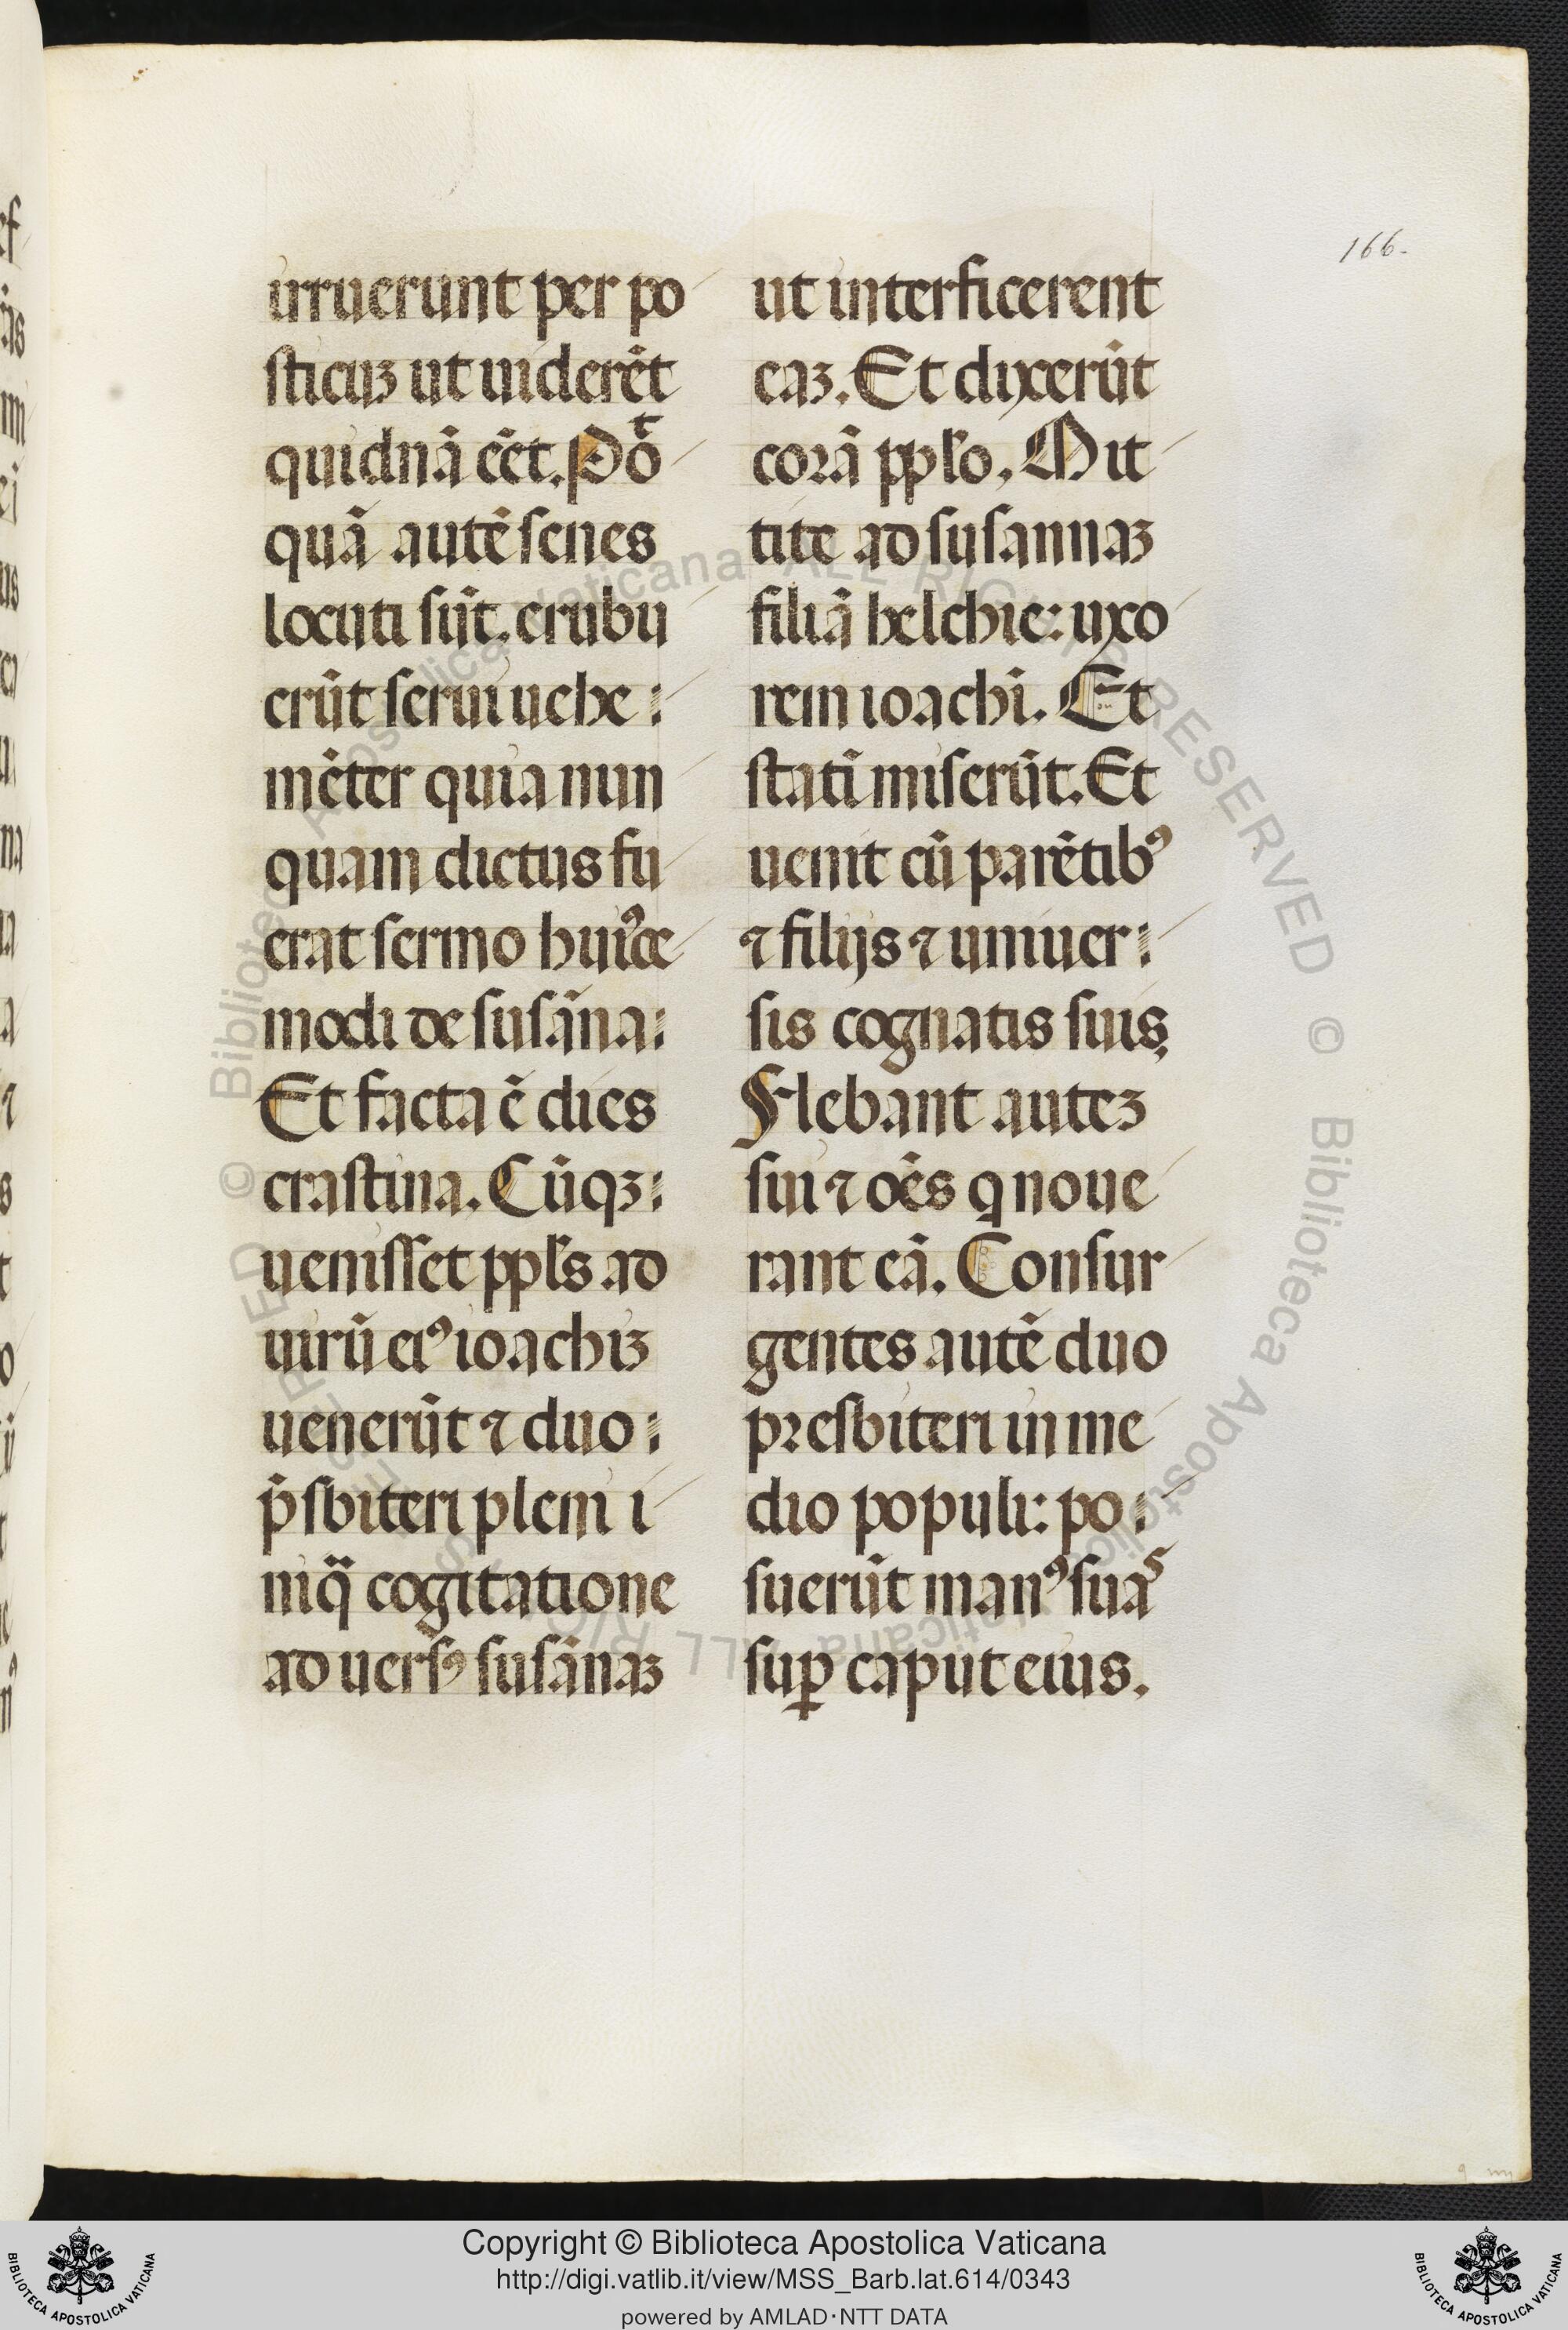 166.
irruerunt per po
sticuʒ ut uiderēt
quidnā eēt. Poᵗ̄
quā autē senes
locuti sūt. erubu
erūt serui uehe:
mēter quia nun
quam dictus fu
erat sermo huiꝰce
modi de susāna:
Et facta ē dies
crastina. Cūqʒ:
uenisset pplȓs ad
uirū eiꝰ ioachiʒ
uenerūt ⁊ duo:
p̄sbiteri pleni i
niq̈ cogitatione
ad uersꝰ susānaʒ
ut interficerent
eaʒ. Et dixerūt
corā pplȓo. Mit
tite ad susannaʒ
filiā helchie: uxo
rem ioachī. Et
statī miserūt. Et
uenit cū parētibꝰ
⁊ filijs ⁊ uniuer:
sis cognatis suis,
Flebant auteʒ
sui ⁊ oēs q noue
rant eā. Consur
gentes autē duo
presbiteri in me
dio populi: po:
suerūt manꝰ suaˢ
suꝑ caput eius.
Copyright © Biblioteca Apostolica Vaticana
http://digi.vatlib.it/view/MSS_Barb.lat.614/0343
powered by AMLAD·NTT DATA
BIBLIOTECA APOSTOLICA VATICANA
BIBLIOTECA APOSTOLICA VATICANA